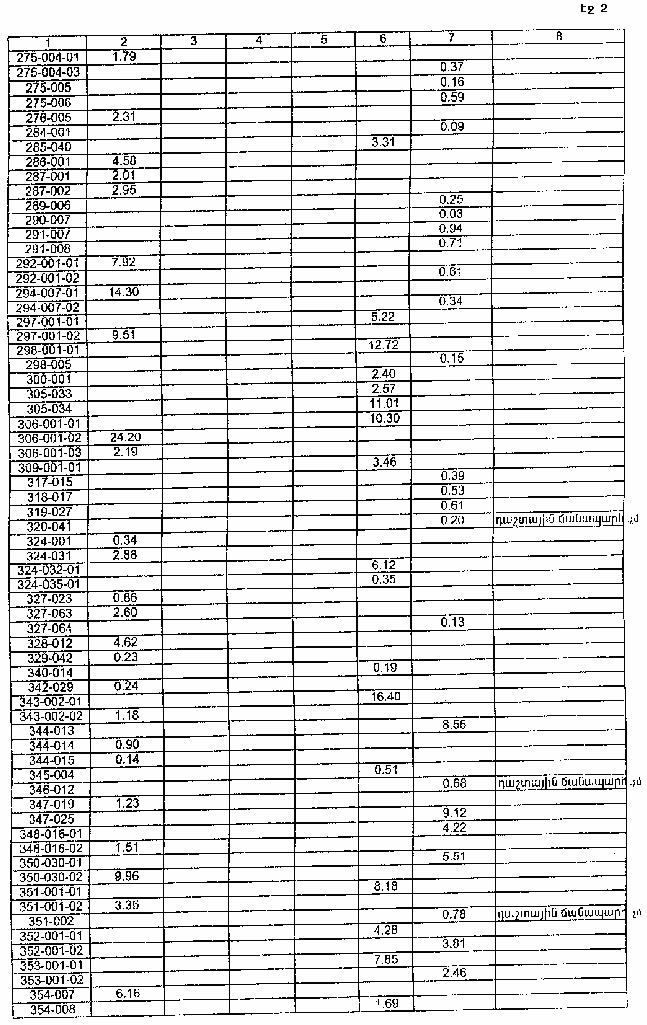 Էջ 2
1 2 3 4 5 6 7 8
275-004-01 1.79
275-004-03 0.37
275-005 0.16
275-006 0.59
278-005 2.31
284-001 0.09
285-040 3.31
286-001 4.58
287-001 2.01
287-002 2.95
289-006 0.25
290-007 0.03
291-007 0.94
291-008 0.71
292-001-01 7.92
292-001-02 0.61
294-007-01 14.30
294-007-02 0.34
297-001-01 5.22
297-001-02 9.51
298-001-01 12.72
298-005 0.15
300-001 2.40
305-033 2.57
305-034 11.01
306-001-01 10.30
306-001-02 24.20
306-001-03 2.19
309-001-01 3.46
317-015 0.39
318-017 0.53
319-027 0.61
320-041 0.20 դաշտային ճանապարհ
324-001 0.34
324-031 2.88
324-032-01 6.12
324-035-01 0.35
327-023 0.86
327-063 2.60
327-064 0.13
328-012 4.62
329-042 0.23
340-014 0.19
342-029 0.24
343-002-01 16.40
343-002-02 1.18
344-013 8.55
344-014 0.90
344-015 0.14
345-004 0.51
346-012 0.68 դաշտային ճանապարհ
347-019 1.23
347-025 9.12
348-016-01 4.22
348-016-02 1.51
350-030-01 5.51
350-030-02 9.96
351-001-01 8.18
351-001-02 3.36
351-002 0.78 դաշտային ճանապարհ
352-001-01 4.28
352-001-02 3.81
353-001-01 7.85
353-001-02 2.46
354-007 6.16
354-008 1.69